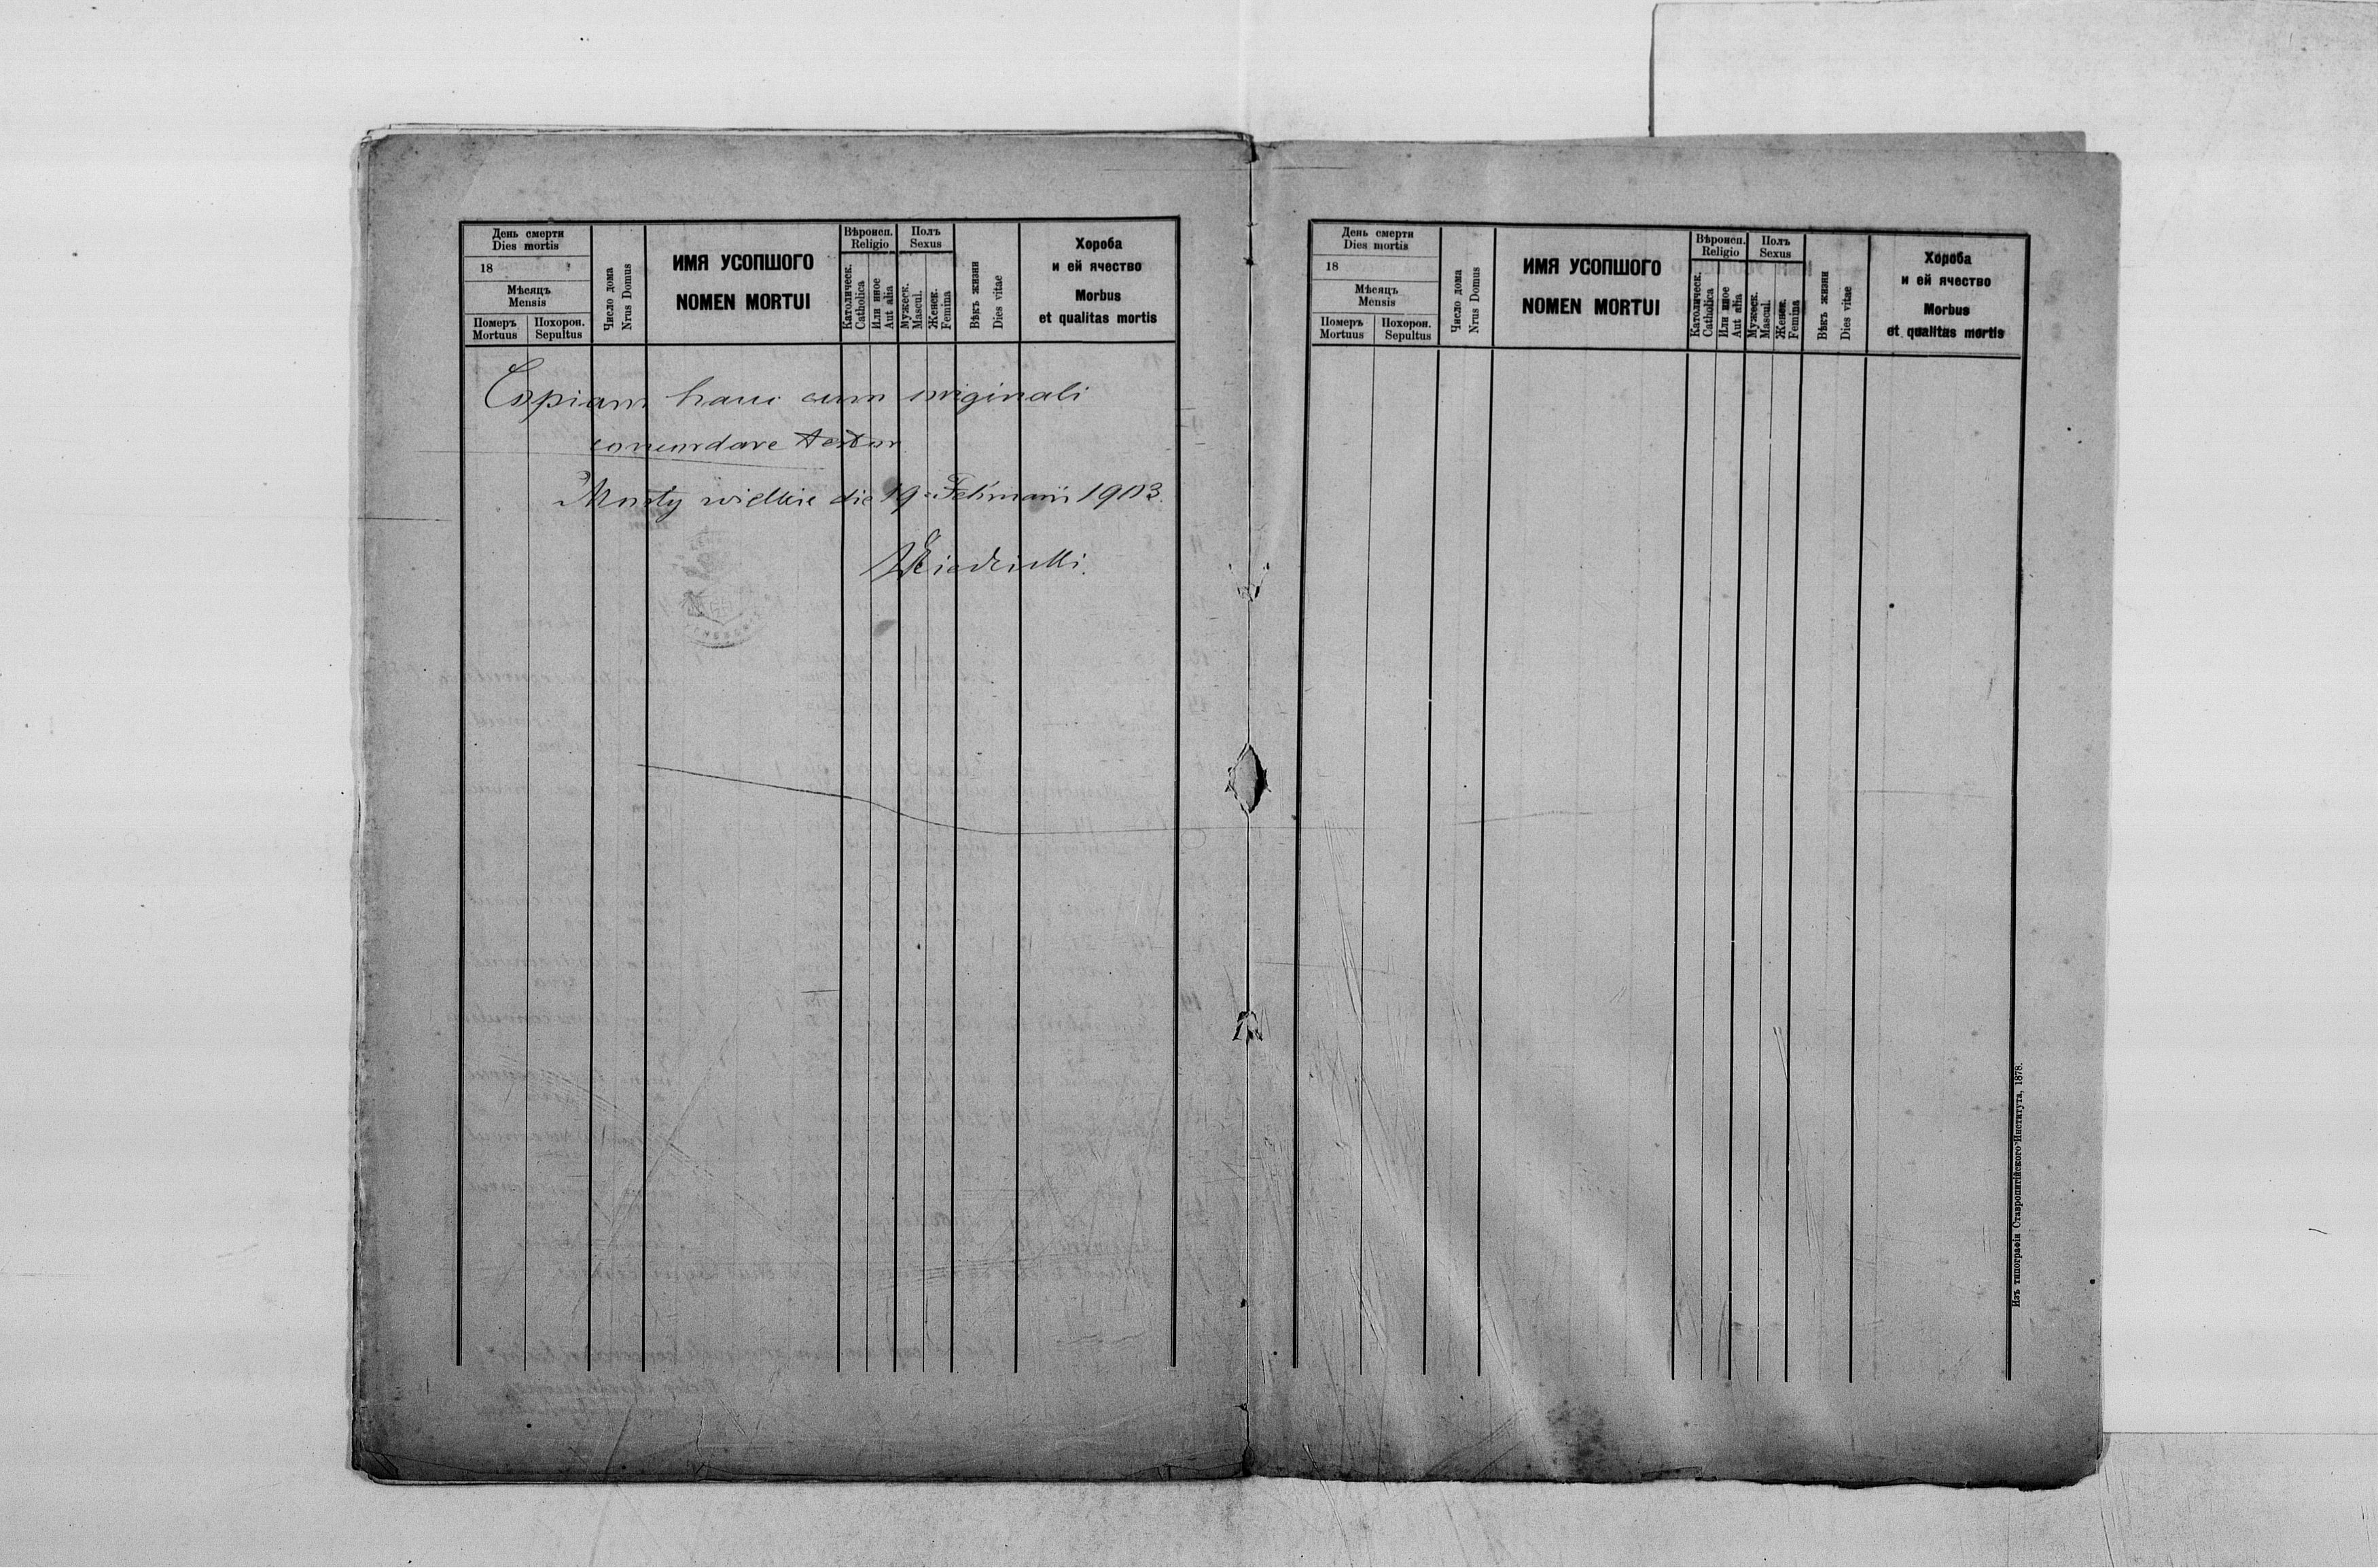 День смерти
Dies mortis
18
Мѣсяцъ
Mensis
Померъ
Mortuus
Похорон.
Sepultus
Число дома
Nrus Domus
ИМЯ УСОПШОГО
NOMEN MORTUI
Вѣроисп.
Religio
Католическ.
Catholica
Или иное
Aut alia
Полъ
Sexus
Мужеск.
Mascul.
Женск.
Femina
Вѣкъ жизни
Dies vitae
Хороба
и ей ячество
Morbus
et qualitas mortis
Copiam hanc cum originali
concordare testor
Mosty wielkie die 19. Februarii 1903.
День смерти
Dies mortis
18
Мѣсяцъ
Mensis
Померъ
Mortuus
Похорон.
Sepultus
Число дома
Nrus Domus
ИМЯ УСОПШОГО
NOMEN MORTUI
Вѣроисп.
Religio
Католическ.
Catholica
Или иное
Aut alia
Полъ
Sexus
Мужеск.
Mascul.
Женск.
Femina
Вѣкъ жизни
Dies vitae
Хороба
и ей ячество
Morbus
et qualitas mortis
Изъ типографіи Ставропигійского Института, 1878.